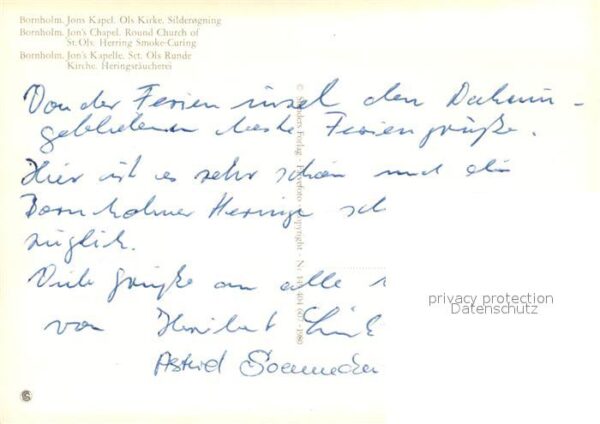 Bornholm. Jons Kapel. Ols Kirke. Silderøgning
Bornholm. Jon's Chapel. Round Church of
St. Ols. Herring Smoke-Curing
Bornholm. Jon's Kapelle. Sct. Ols Runde
Kirche. Heringsräucherei
Von der Ferieninsel den Daheim-
gebliebenen beste Feriengrüße.
Hier ist es sehr schön und die
Bornholmer Heringe sch
züglich.
Viele Grüße an alle
von Heribert
Astrid
Forlag - Farvefoto - Copyright - Nr.
privacy protection
Datenschutz